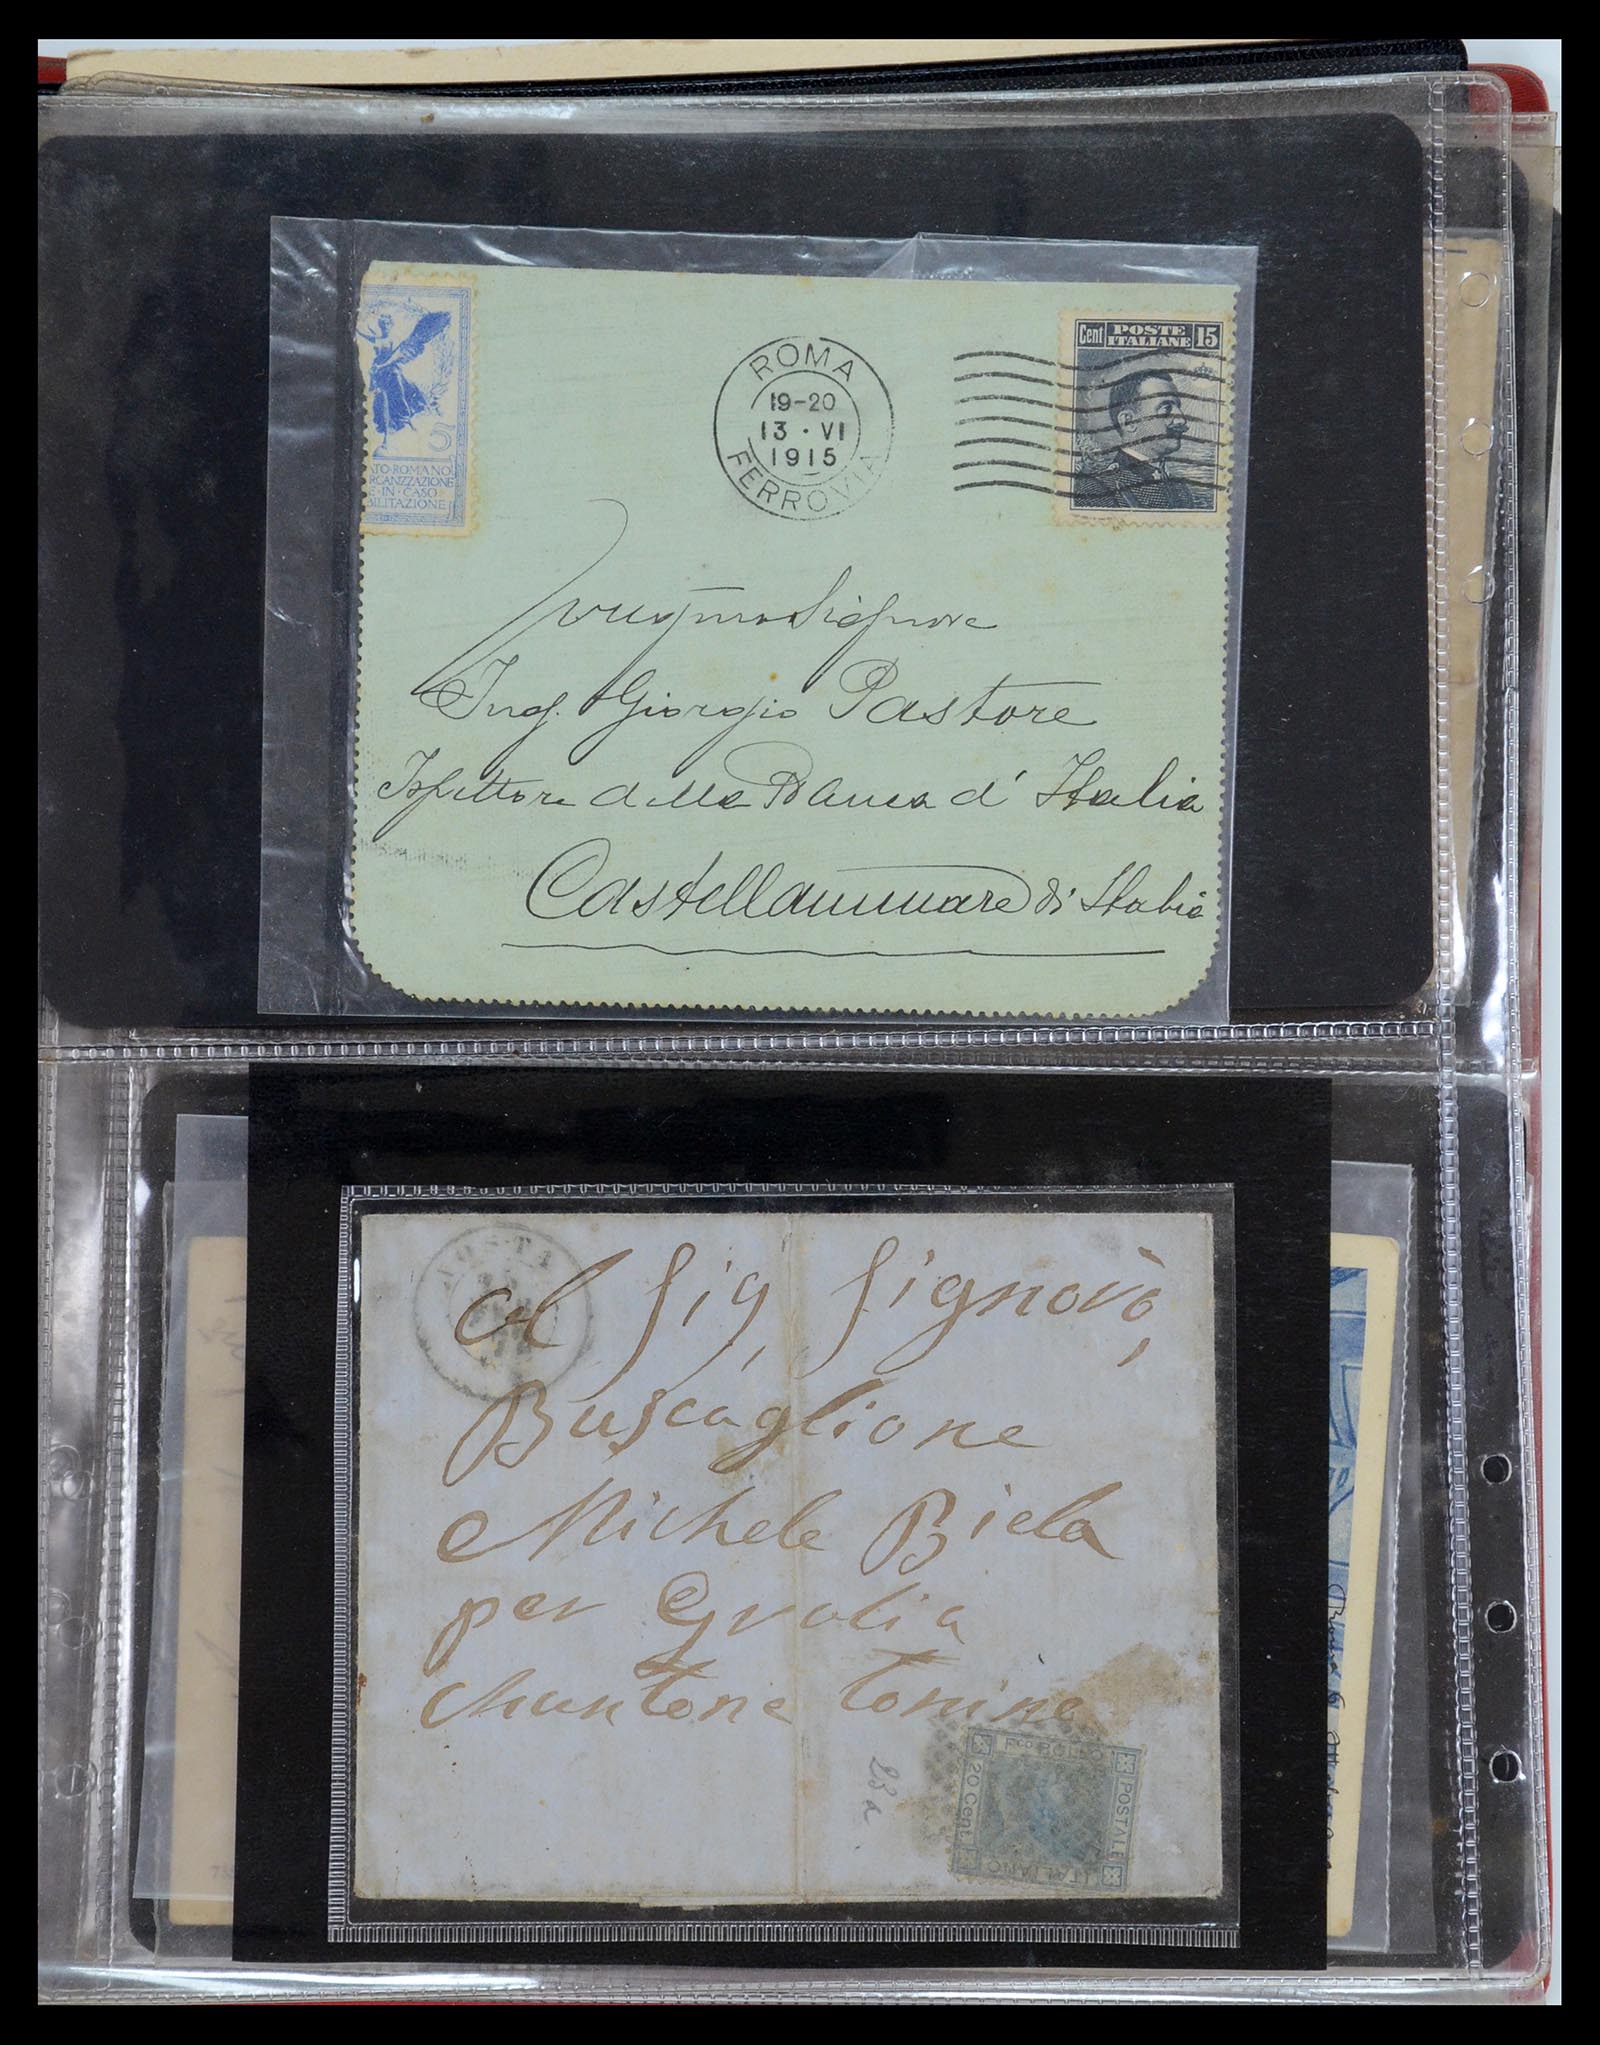 5
ATO·ROMANO
RGANIZZAZIONE
E·IN·CASO
BILITAZIONE
ROMA
19-20
13·VI
1915
FERROVIA
Cent POSTE ITALIANE 15
Signore
Ing. Giorgio Pastore
Ispettore della Banca d'Italia
Castellammare di Stabia
AOSTA
al Sig, Signovò,
Buscaglione
Michele Biela
per Gvalia
Tonine
23a
Fco BOLLO
20 Cent.
POSTALE
ITALIANO